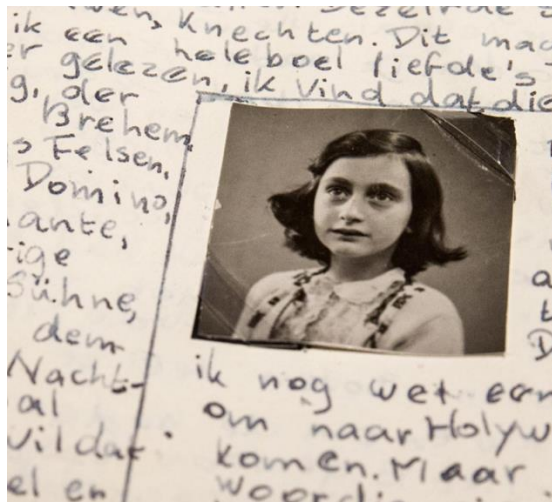 knechten. Dit
ik een heleboel liefde's
gelezen, ik vind dat die
g, der
Brehem,
s Felsen,
Domino,
ante,
rige
Sühne,
dem
Nacht-
al
wil dat
el en
ik nog wet een
om naar Holyw
komen. Maar